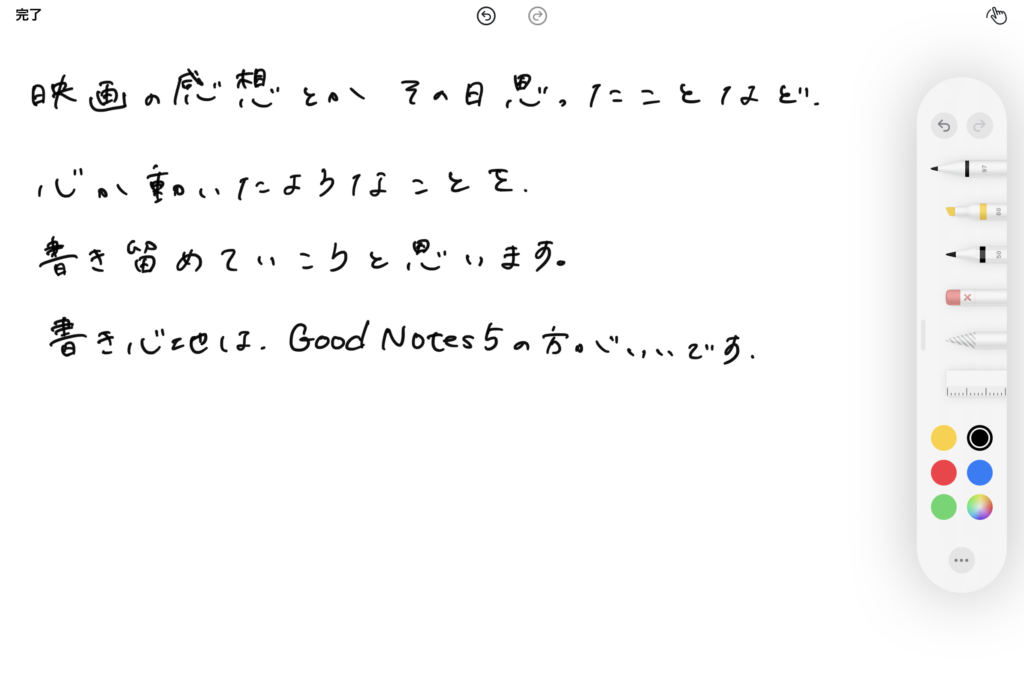 完了
映画の感想とか その日思ったことなど.
心が動いたようなことを.
書き留めていこうと思います。
書き心地は. Good Notes 5の方がいいです.
97
80
50